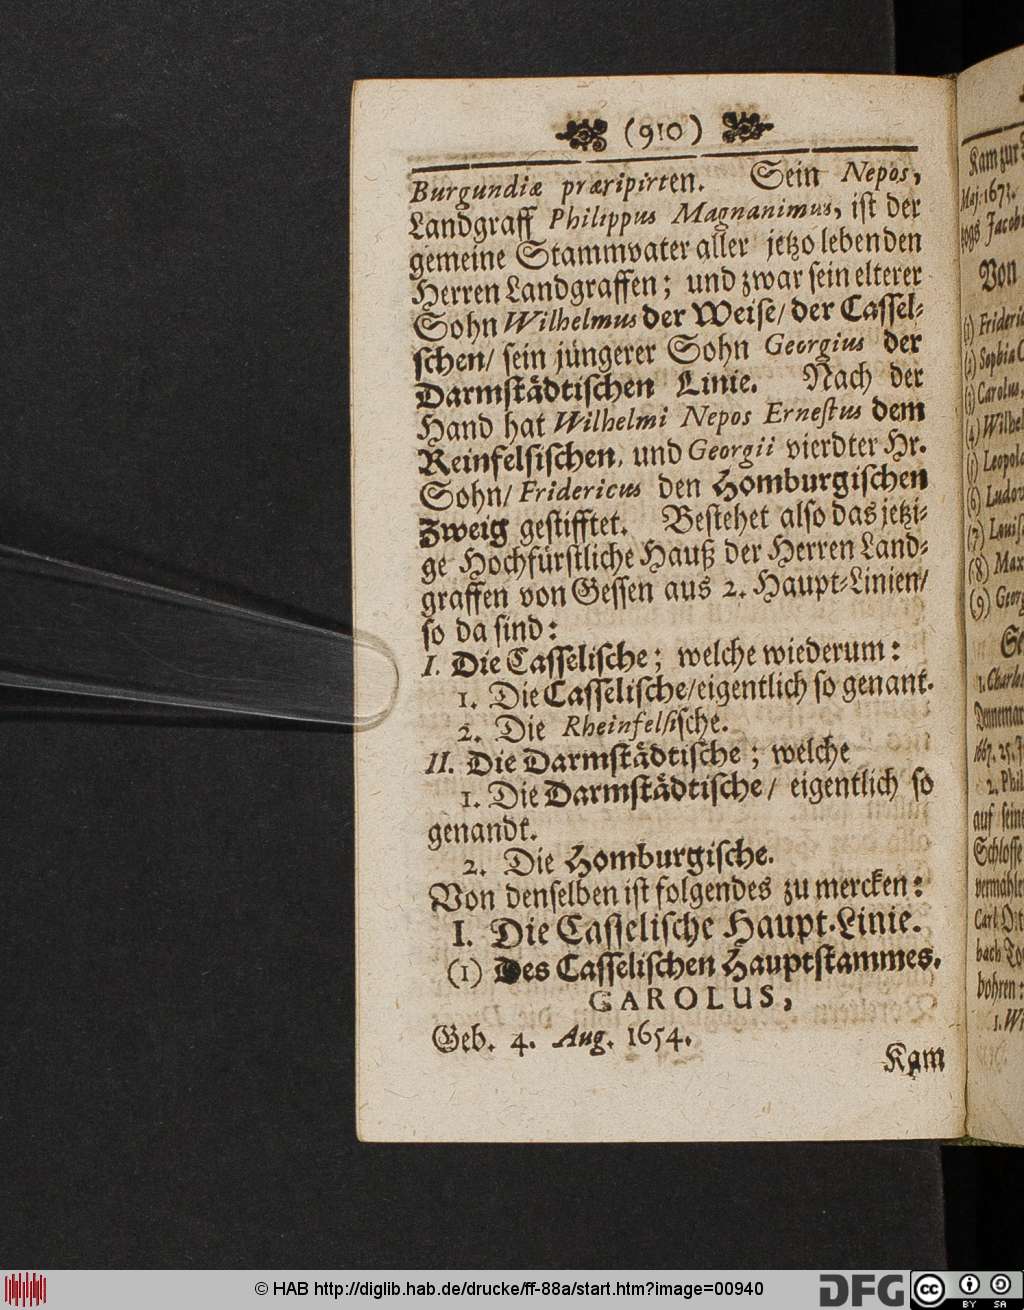 (910)
Burgundiæ præripirten. Sein Nepos,
Landgraff Philippus Magnanimus, ist der
gemeine Stammvater aller jetzo lebenden
Herren Landgraffen; und zwar sein elterer
Sohn Wilhelmus der Weise/ der Cassel-
schen/ sein jüngerer Sohn Georgius der
Darmstädtischen Linie. Nach der
Hand hat Wilhelmi Nepos Ernestus dem
Reinfelsischen, und Georgii vierdter Hr.
Sohn/ Fridericus den Homburgischen
Zweig gestifftet. Bestehet also das jetzi-
ge Hochfürstliche Hauß der Herren Land-
graffen von Gessen aus 2. Haupt-Linien/
so da sind:
I. Die Casselische; welche wiederum:
1. Die Casselische/eigentlich so genant.
2. Die Rheinfelsische.
II. Die Darmstädtische; welche
1. Die Darmstädtische/ eigentlich so
genandt.
2. Die Homburgische.
Von denselben ist folgendes zu mercken:
I. Die Casselische Haupt-Linie.
(1) Des Casselischen Hauptstammes.
CAROLUS,
Geb. 4. Aug. 1654.
Kam
Kam zur
Maj. 1673.
Von
(2) Sophia C
(3) Carolus,
(7) Louis
(8) Max
(9) Georg
1. Charlo
2. Phil
auf seine
Schlosse
bohren:
1. Wi
© HAB http://diglib.hab.de/drucke/ff-88a/start.htm?image=00940
DFG
cc
BY SA